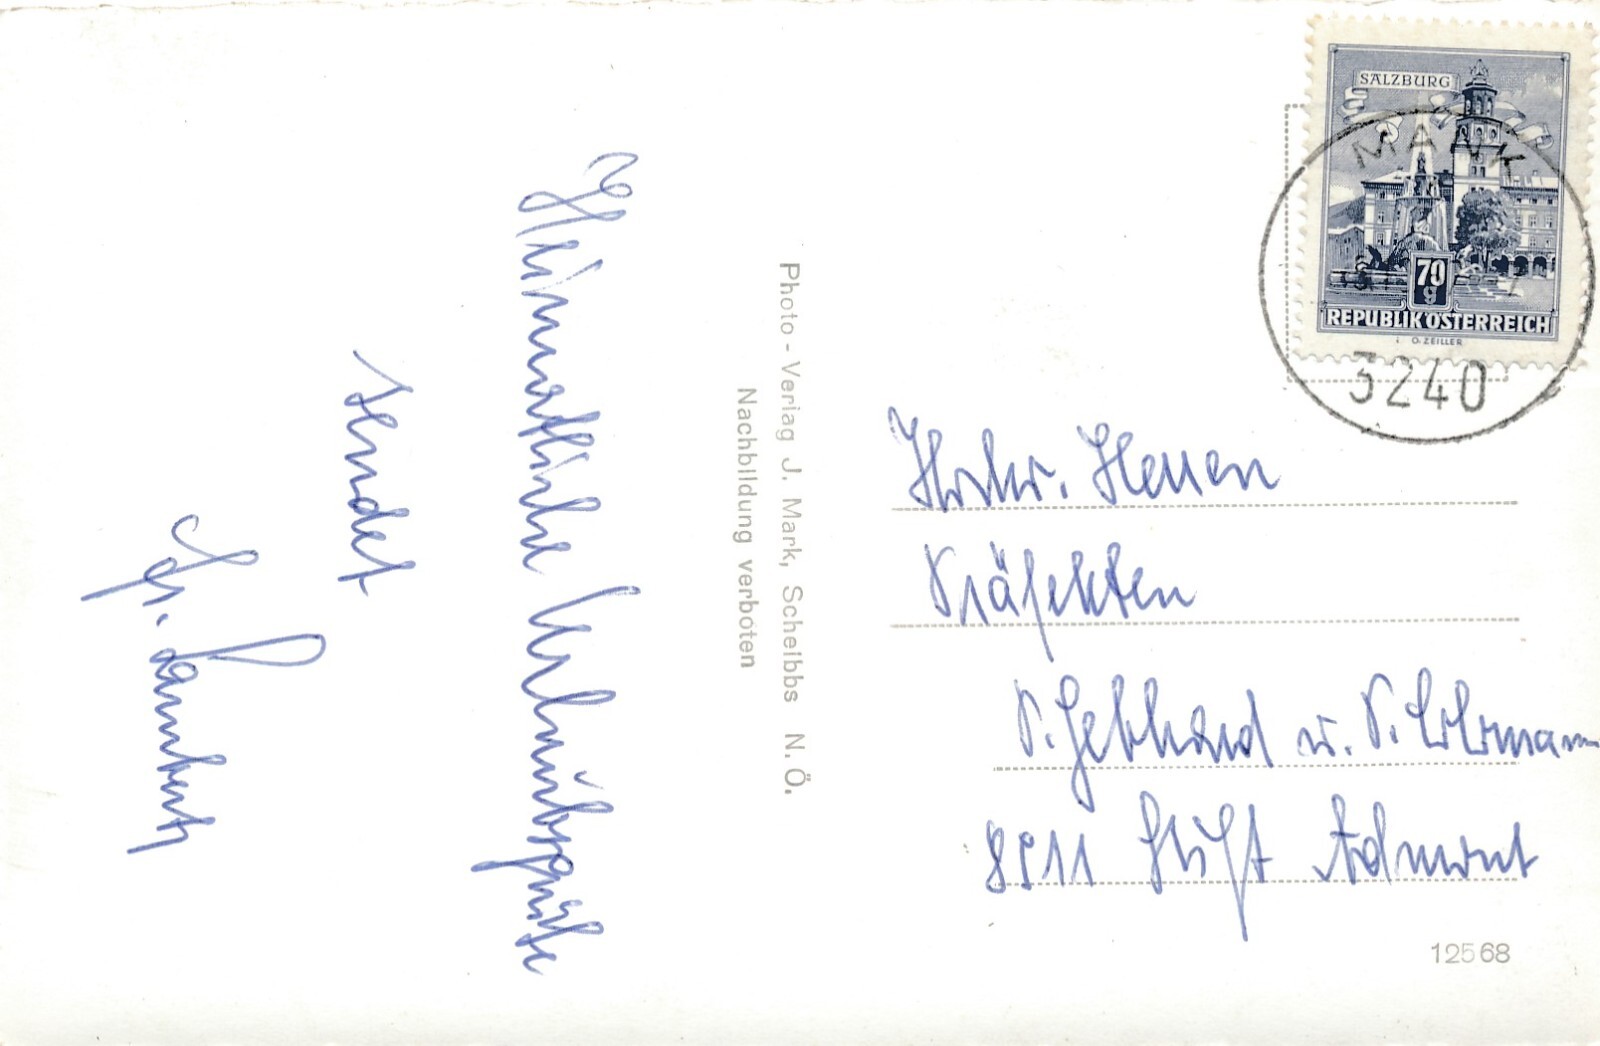 Heimatliche Urlaubsgrüße
sendet
Photo - Verlag J. Mark, Scheibbs N.Ö.
Nachbildung verboten
SALZBURG
70
g
REPUBLIK ÖSTERREICH
O. ZEILLER
MANK
3240
Hochw. Herren
Präfekten
P. Gebhard u. P.
8911 Stift Admont
12568